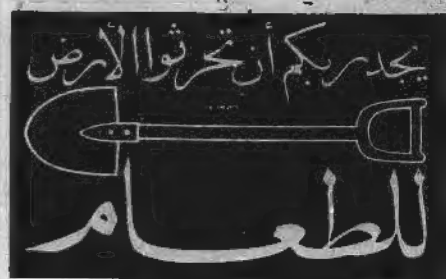 يجدر بكم أن تحرثوا الأرض
للطعام